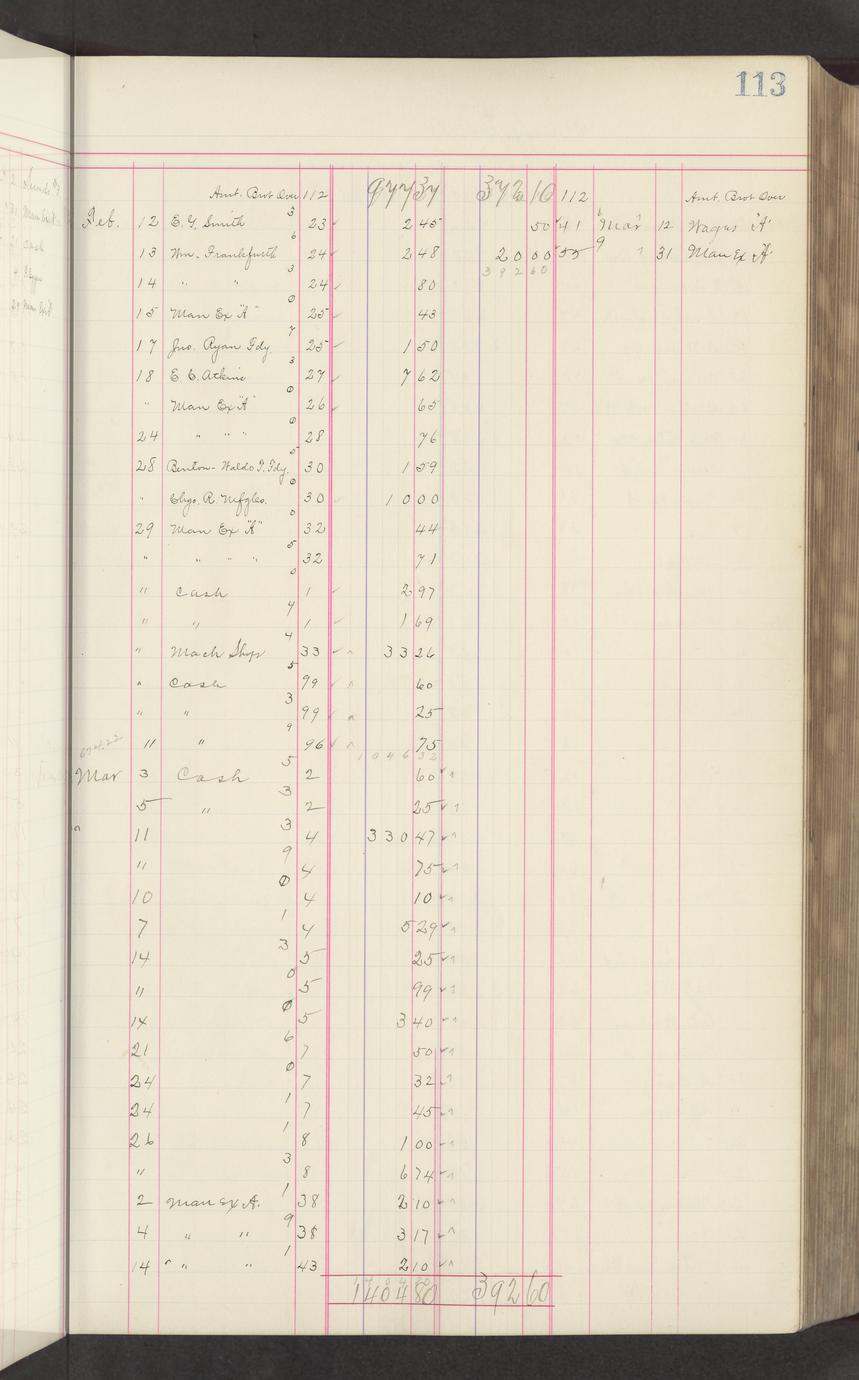 113
Amt. Brot Over 112 977 37 372 10 112 Amt. Brot Over
Feb. 12 E. G. Smith 3 23 2 45 50 41 6 Mar 12 Wages "A"
13 Wm. Frankfurth 6 24 2 48 20 00 55 9 " 31 Man Ex "A"
14 " " 3 24 80 392 60
15 Man Ex "A" 0 25 43
17 Jno. Ryan Fdy. 7 25 1 50
18 E. C. Atkins 3 27 7 62
" Man Ex "A" 0 26 65
24 " " " 0 28 76
28 Benton-Waldo T. Fdy. 5 30 1 59
" Chgo. R. Mfgs. 0 30 10 00
29 Man Ex "A" 0 32 44
" " " " 5 32 71
" Cash 0 1 2 97
" " 4 1 1 69
" Mach Shop 4 33 33 26
" Cash 5 99 60
" " 3 99 25
" " 9 96 75
1046 32
Mar 3 Cash 5 2 60
5 " 3 2 25
11 3 4 330 47
" 9 4 75
10 0 4 10
7 1 4 5 29
14 3 5 25
" 0 5 99
14 0 5 3 40
21 6 7 50
24 0 7 32
24 1 7 45
26 1 8 1 00
" 3 8 6 74
2 Man Ex A. 1 38 2 10
4 " " 9 38 3 17
14 " " 1 43 2 10
1404 80 392 60